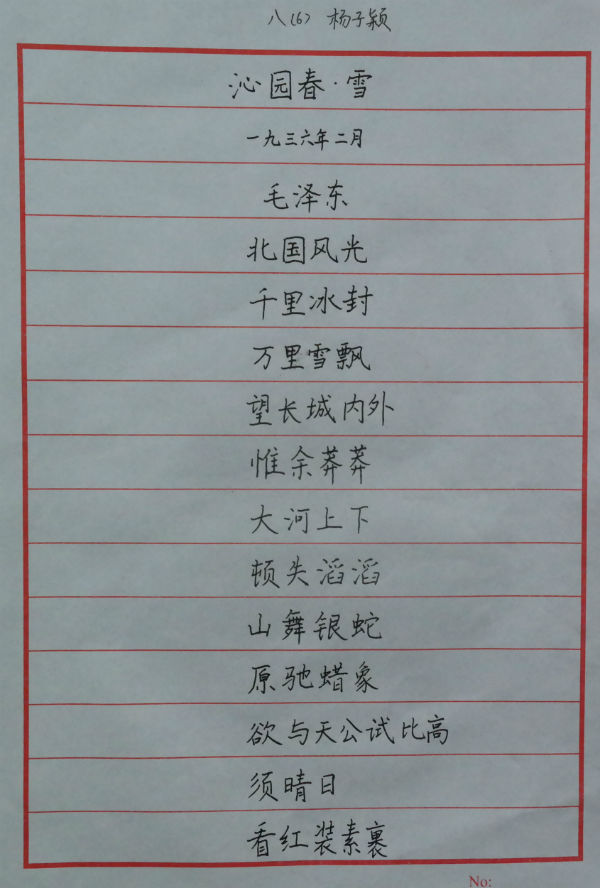 八(6) 杨子颖
沁园春·雪
一九三六年二月
毛泽东
北国风光
千里冰封
万里雪飘
望长城内外
惟余莽莽
大河上下
顿失滔滔
山舞银蛇
原驰蜡象
欲与天公试比高
须晴日
看红装素裹
No: